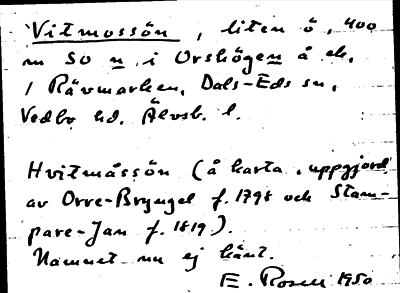 Vitmossön, liten ö, 400
m SO n i Urshögen å ek.
/ Rävmarken, Dals-Eds sn,
Vedbo hd, Älvsb. l.
Hvitmåssön (å karta, uppgjord
av Orre-Bryngel f. 1798 och Stam-
pare-Jan f. 1819).
Namnet nu ej känt.
E. Rosell 1950